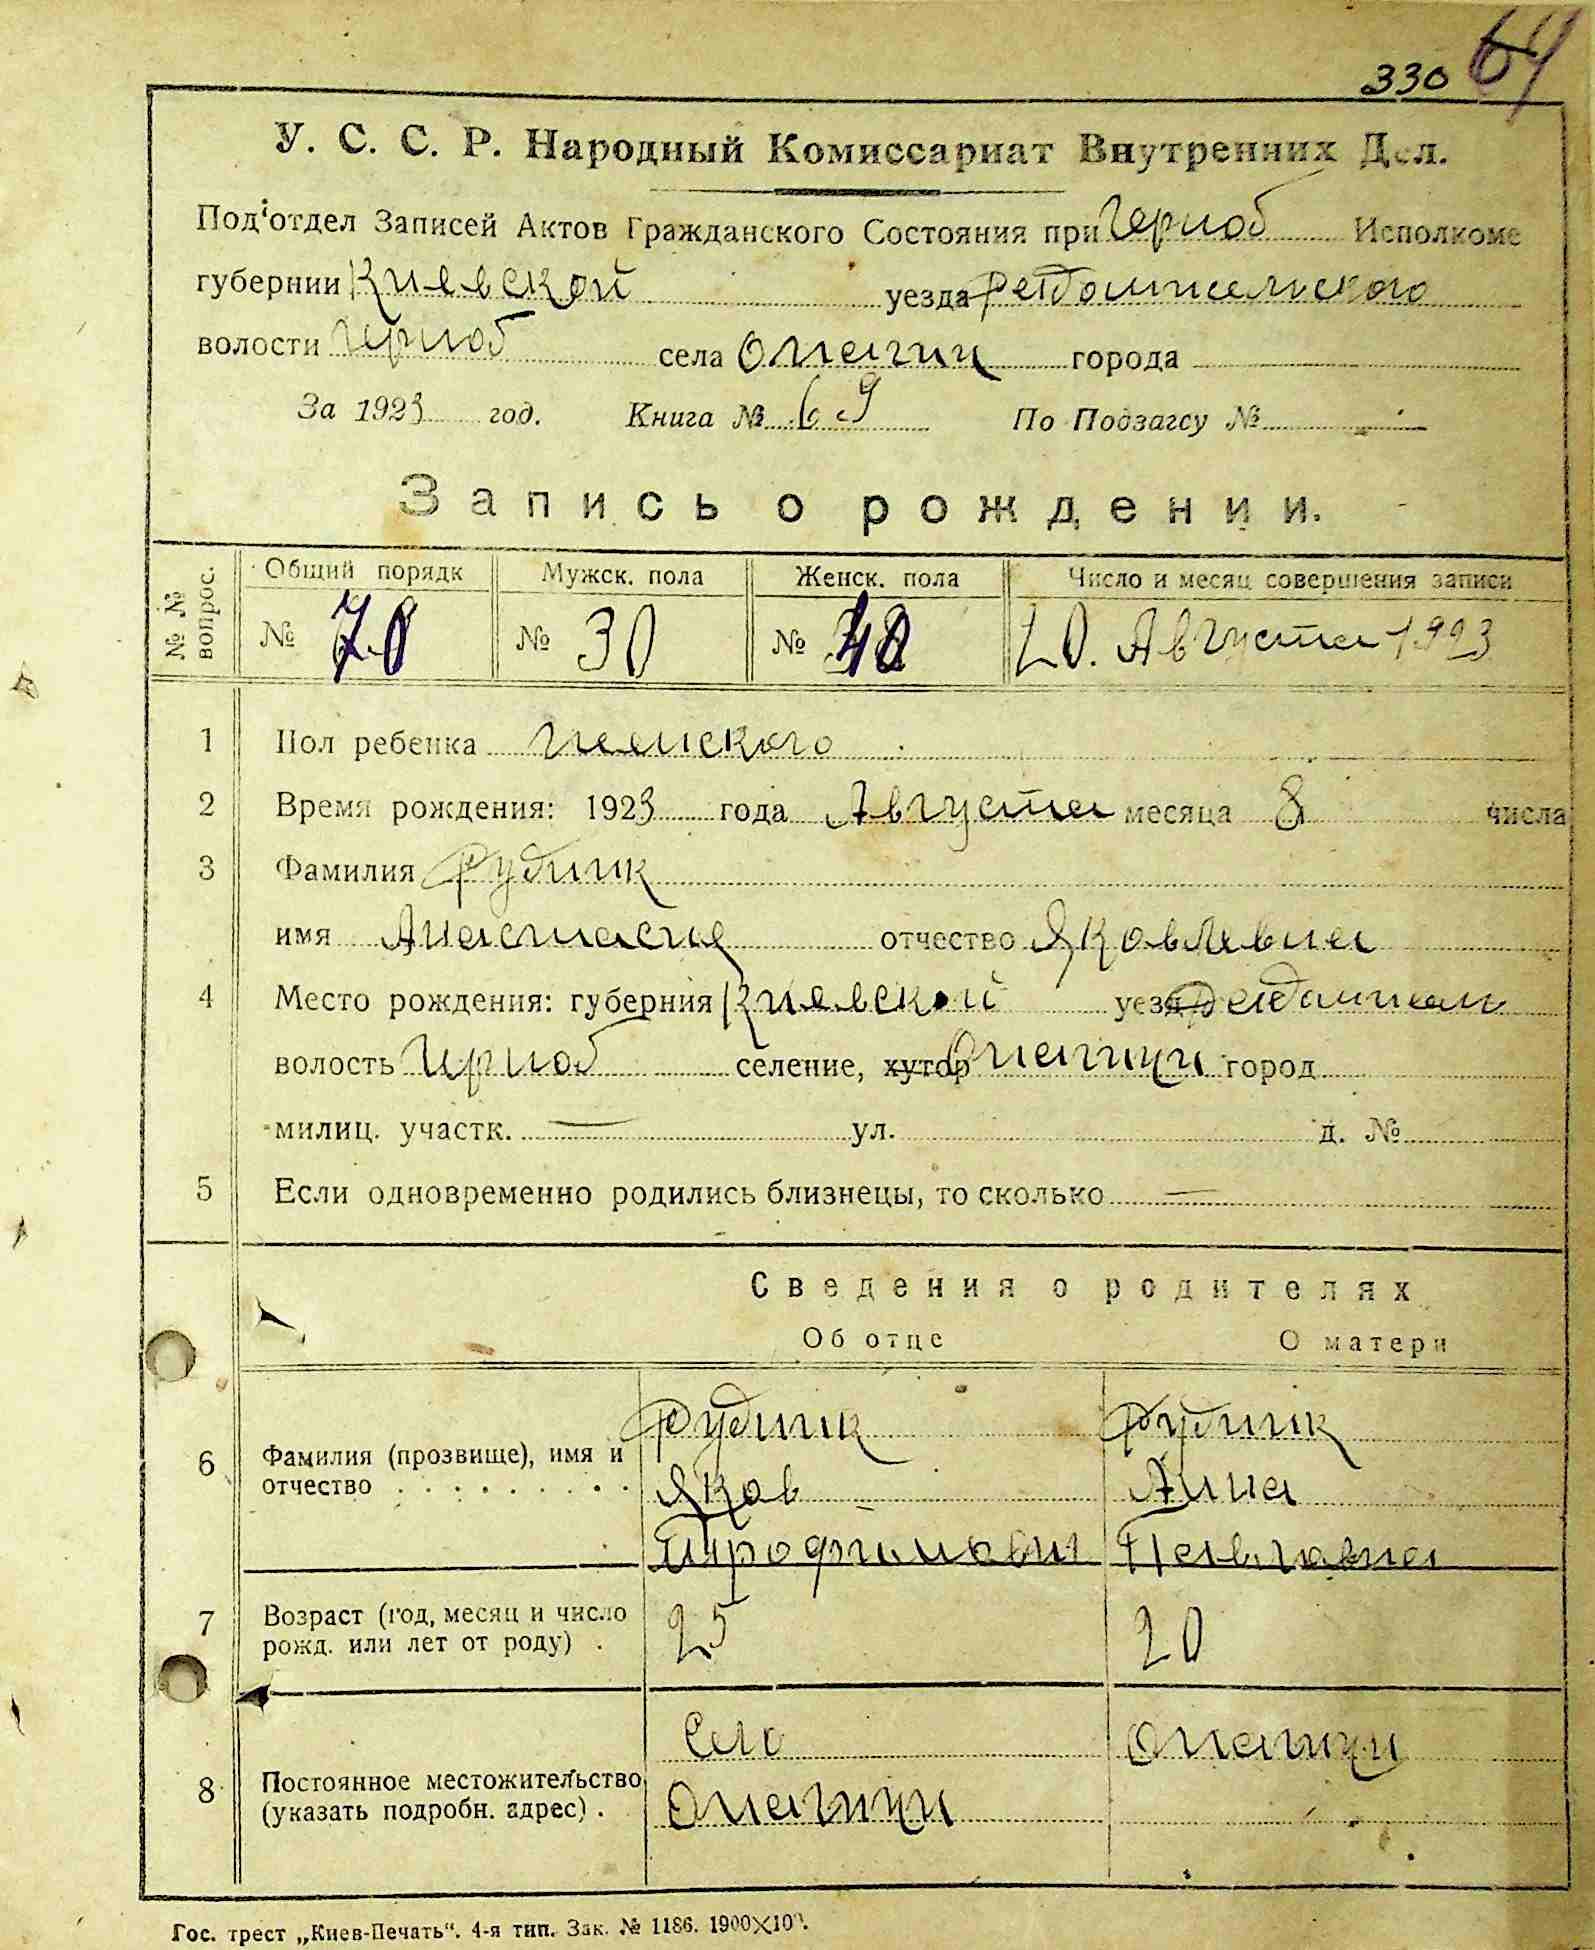 330 64
У. С. С. Р. Народный Комиссариат Внутренних Дел.
Под'отдел Записей Актов Гражданского Состояния при Черноб Исполкоме
губернии Киевской уезда Радомысльского
волости Черноб села Опачич города
За 1923 год. Книга № 69 По Подзагсу №
Запись о рождении.
№ № вопрос. Общий порядк Мужск. пола Женск. пола Число и месяц совершения записи
№ 70 № 30 № 40 20. Августа 1923
1 Пол ребенка женского
2 Время рождения: 1923 года Августа месяца 8 числа
3 Фамилия Рудник
имя Анастасия отчество Яковлевна
4 Место рождения: губерния Киевской уезд
волость Черноб селение, хутор Опачичи город
милиц. участк. — ул. д. №
5 Если одновременно родились близнецы, то сколько —
Сведения о родителях
Об отце О матери
6 Фамилия (прозвище), имя и отчество Рудник Рудник
Яков Анна
Трофимович Павловна
7 Возраст (год, месяц и число рожд. или лет от роду) 25 20
8 Постоянное местожительство (указать подробн. адрес) Село Опачичи
Опачичи
Гос. трест „Киев-Печать“. 4-я тип. Зак. № 1186. 1900×100.